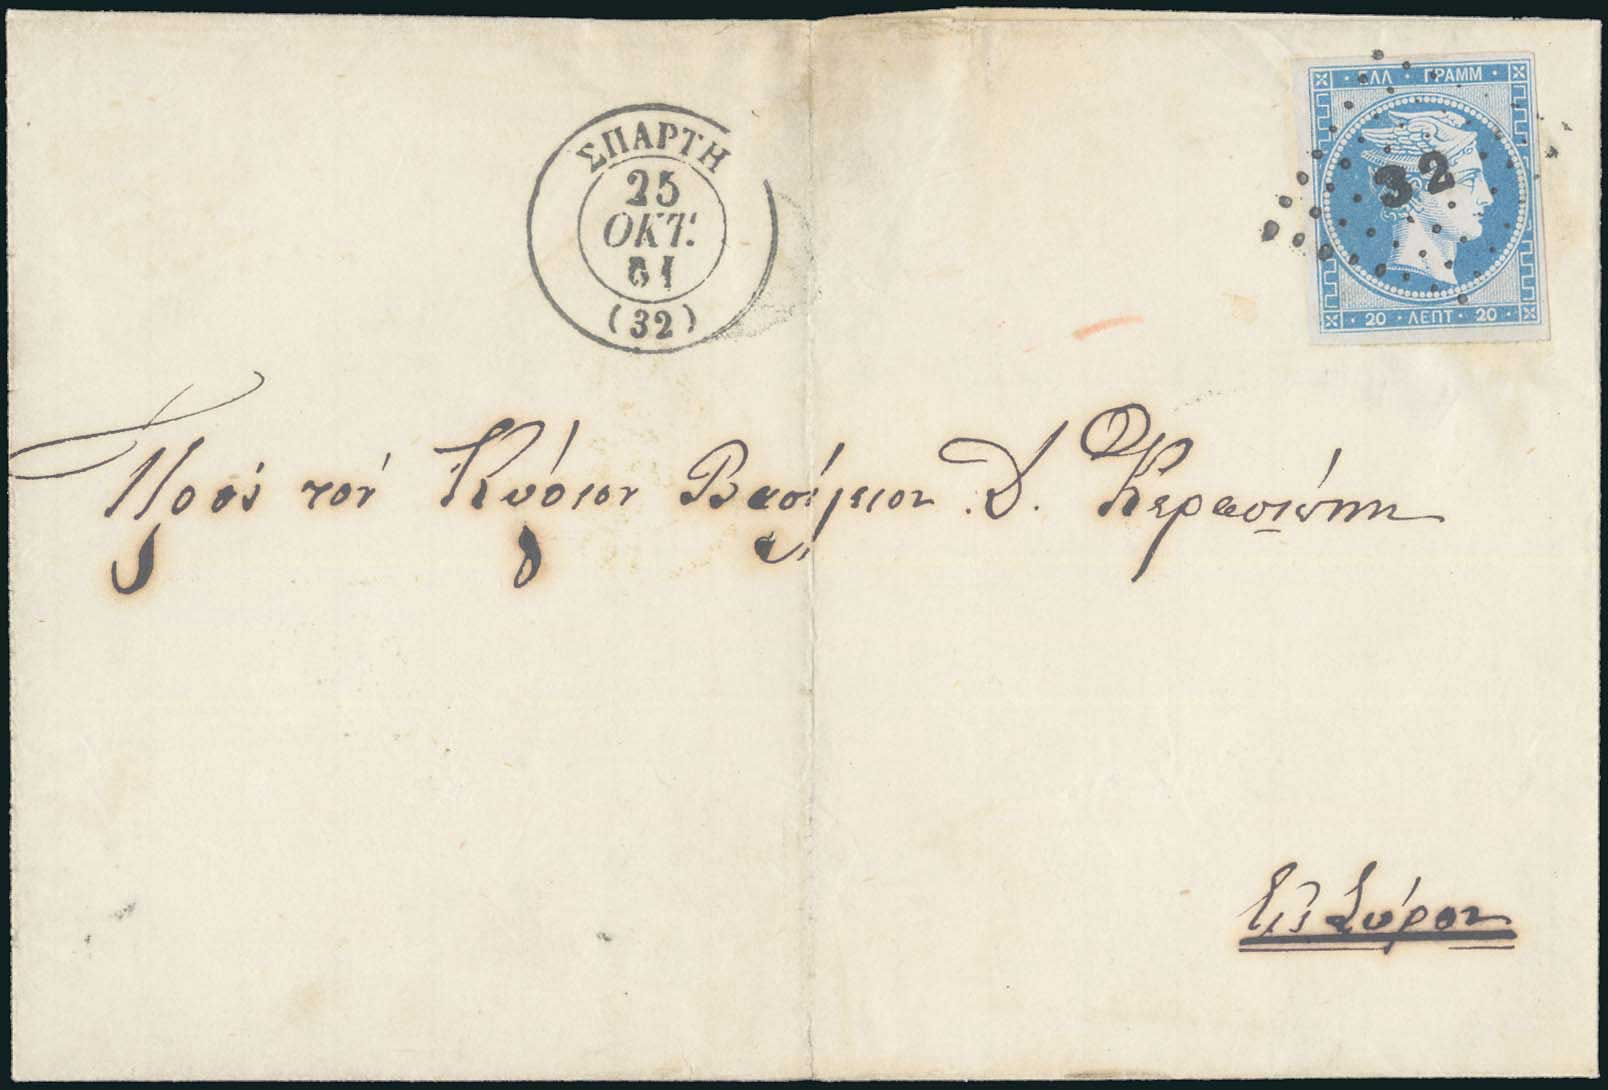 ΣΠΑΡΤΗ
25
ΟΚΤ.
61
(32)
ΕΛΛ · ΓΡΑΜΜ ·
32
· 20 · ΛΕΠΤ · 20 ·
Προς τον Κύριον Βασίλειον Δ. Κερασιώτην
Εις Σύρον